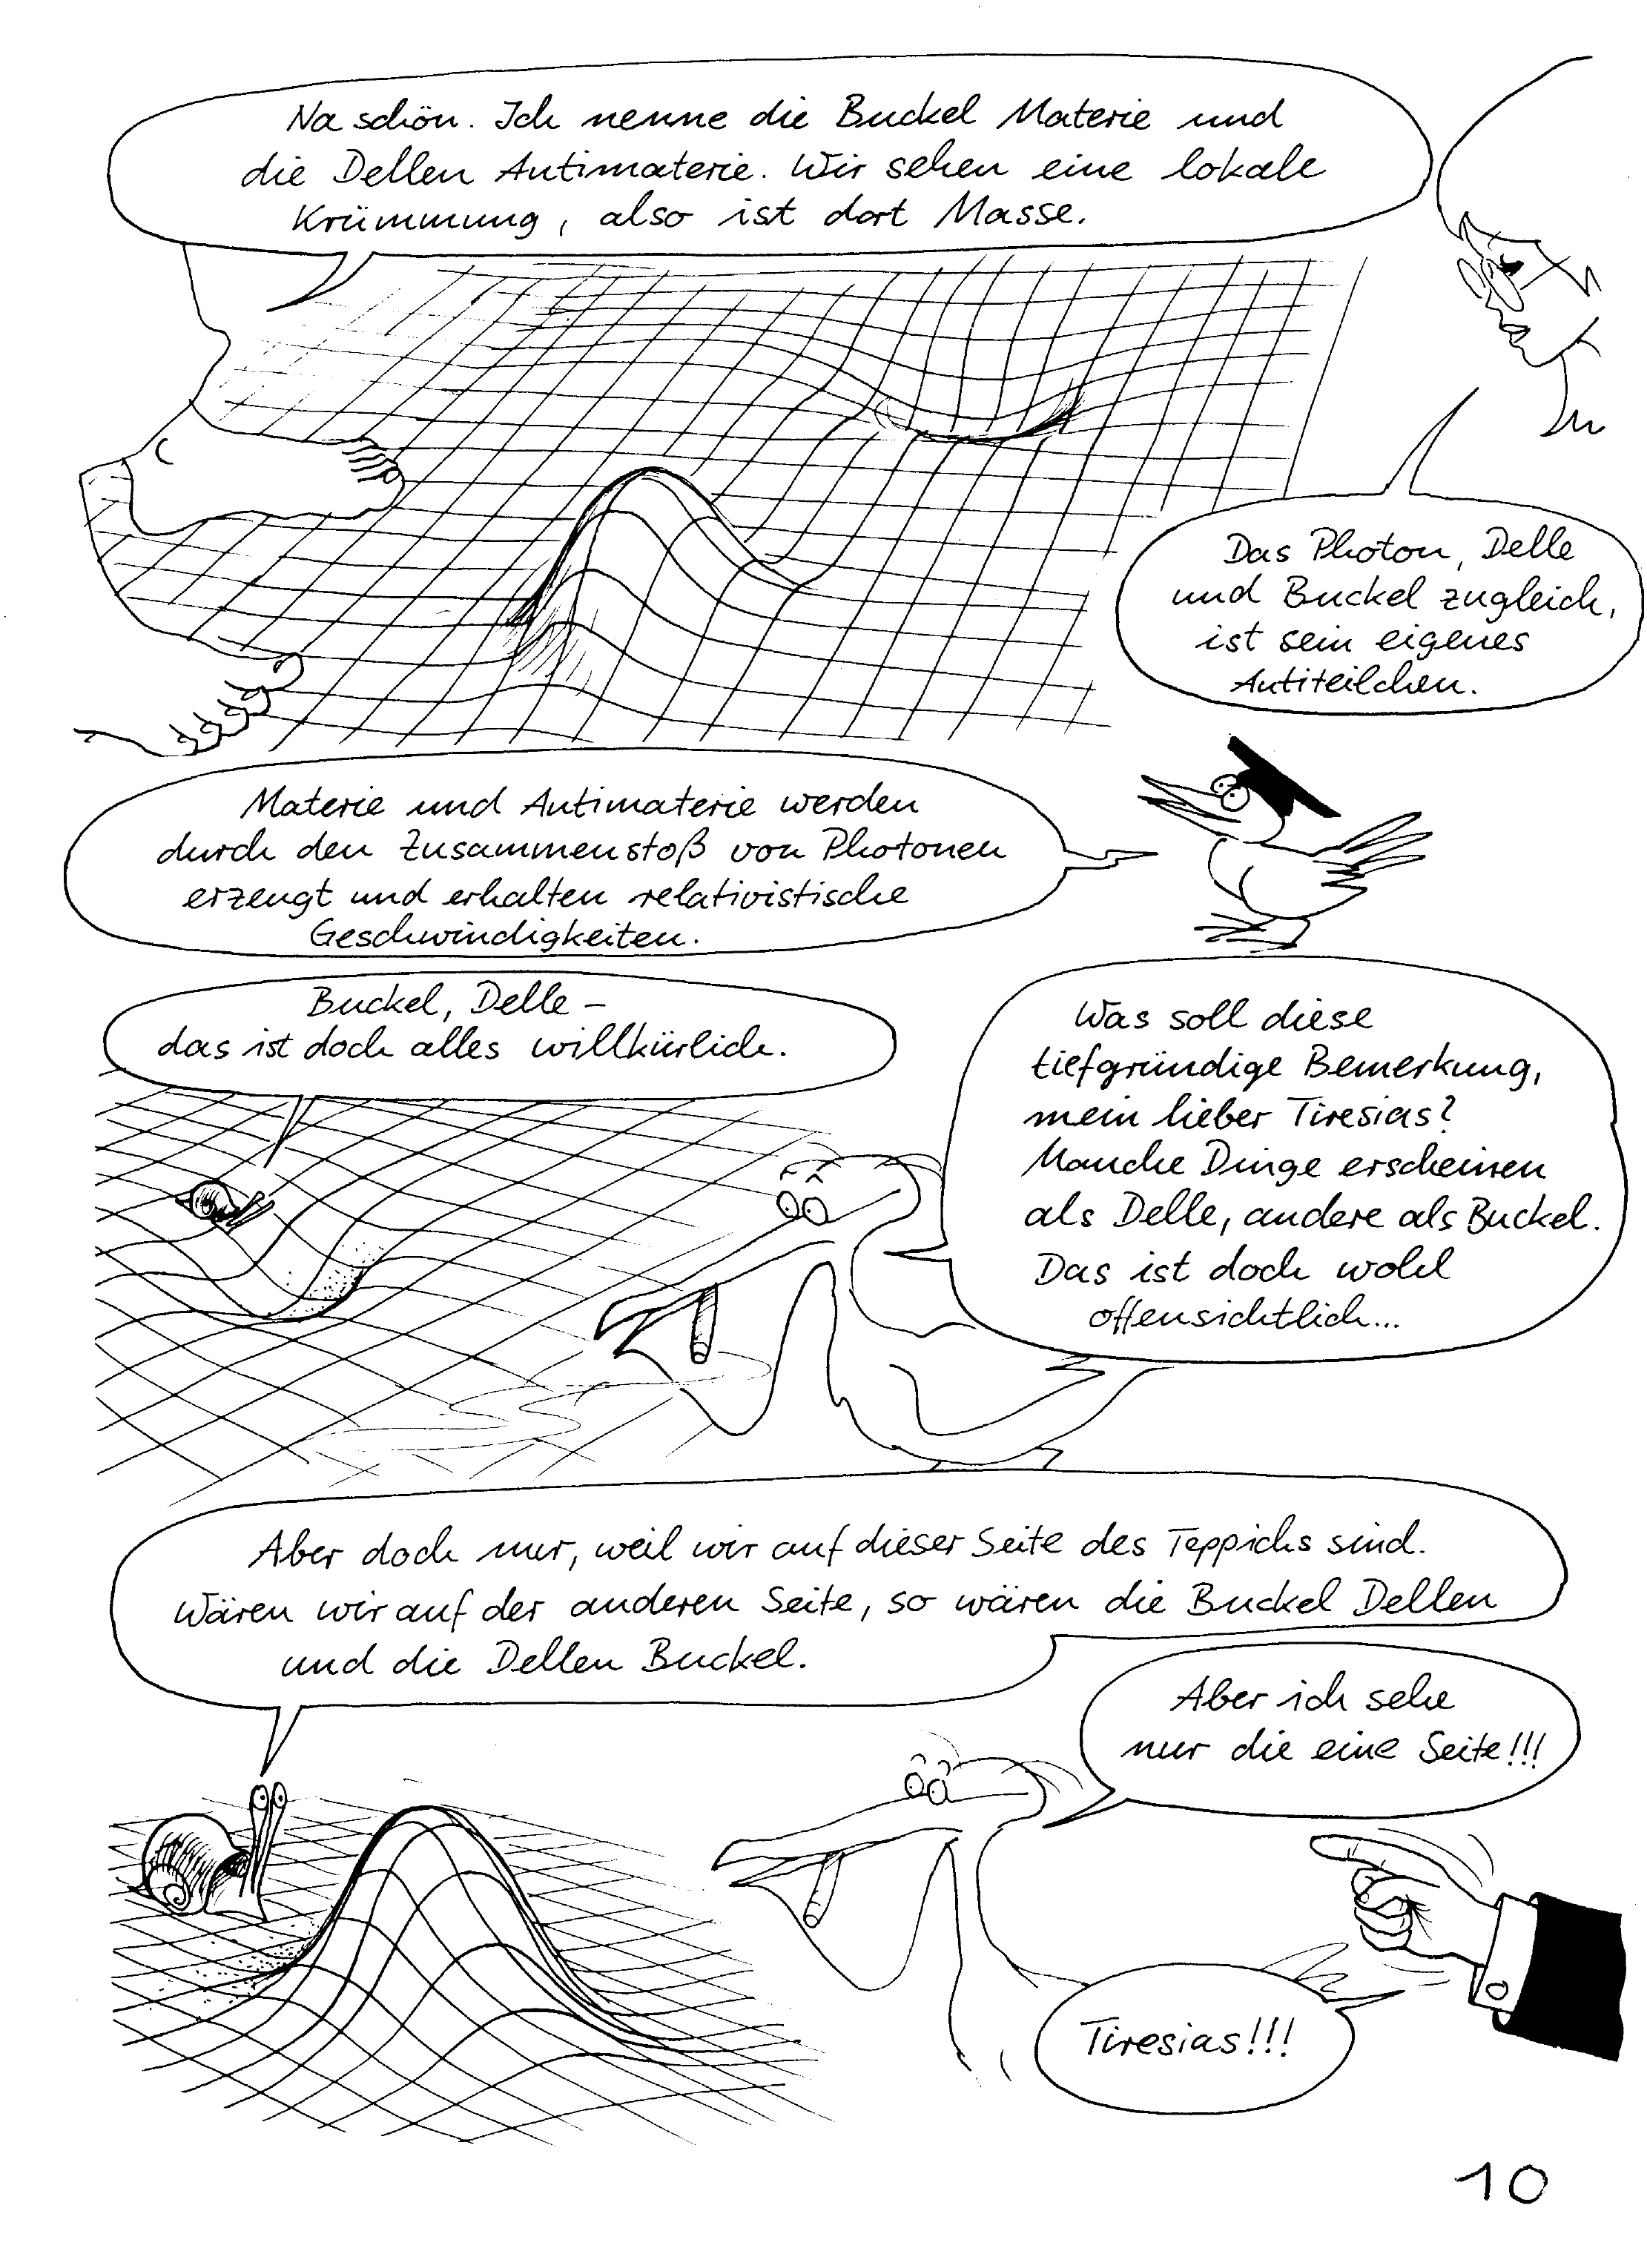 Na schön. Ich nenne die Buckel Materie und
die Dellen Antimaterie. Wir sehen eine lokale
Krümmung, also ist dort Masse.
Das Photon, Delle
und Buckel zugleich,
ist sein eigenes
Antiteilchen.
Materie und Antimaterie werden
durch den Zusammenstoß von Photonen
erzeugt und erhalten relativistische
Geschwindigkeiten.
Buckel, Delle –
das ist doch alles willkürlich.
Was soll diese
tiefgründige Bemerkung,
mein lieber Tiresias?
Manche Dinge erscheinen
als Delle, andere als Buckel.
Das ist doch wohl
offensichtlich...
Aber doch nur, weil wir auf dieser Seite des Teppichs sind.
Wären wir auf der anderen Seite, so wären die Buckel Dellen
und die Dellen Buckel.
Aber ich sehe
nur die eine Seite!!!
Tiresias!!!
10